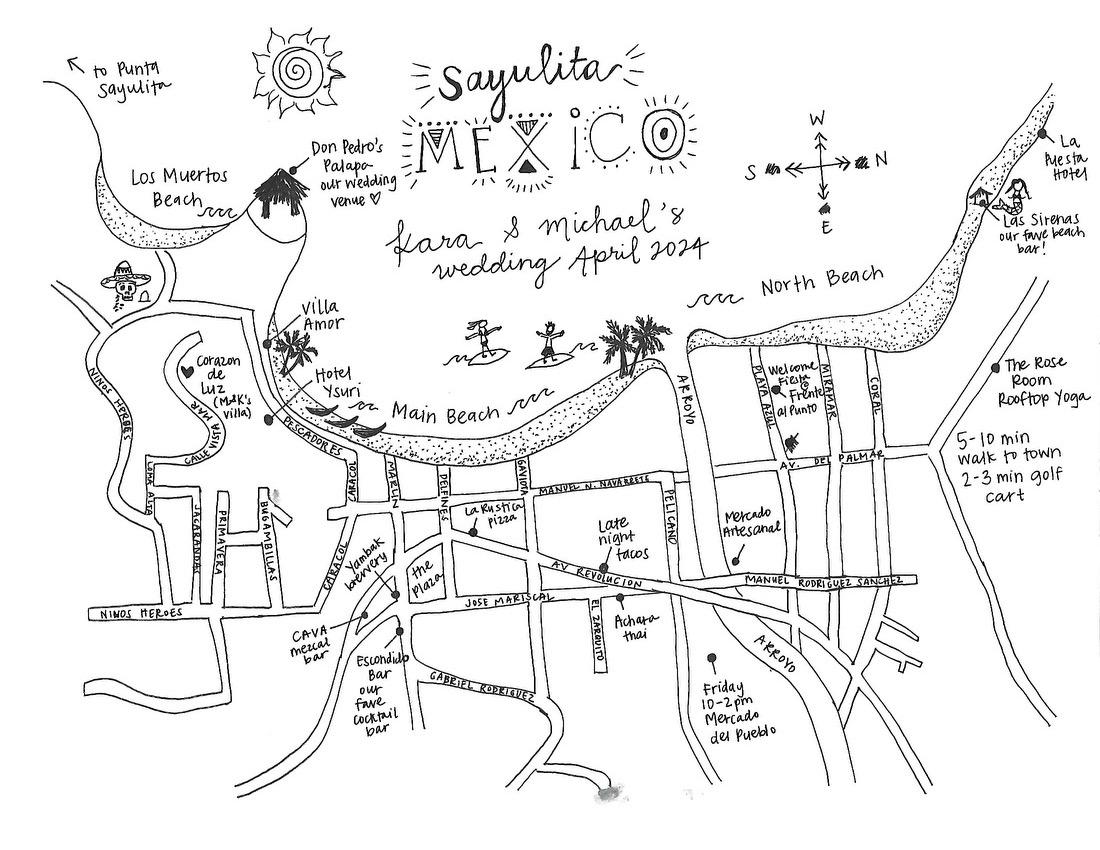 to Punta
Sayulita
Sayulita
MEXICO
Kara & Michael's
wedding April 2024
W
S
N
E
Don Pedro's
Palapa
our wedding
venue ♡
Los Muertos
Beach
La
Puesta
Hotel
Las Sirenas
our fave beach
bar!
North Beach
Villa
Amor
Hotel
Ysuri
Main Beach
Corazon
de
Luz
(M&K's
villa)
NINOS HEROES
CALLE VISTA MAR
PESCADORES
LOMA ALTA
JACARANDAS
PRIMAVERA
BUGAMBILLAS
CARACOL
CARACOL
MARLIN
DELFINES
GAVIOTA
MANUEL N. NAVARRETE
PELICANO
ARROYO
PLAYA AZUL
Welcome
Fiesta
@ Frente
al Punto
MIRAMAR
CORAL
AV. DEL PALMAR
The Rose
Room
Rooftop Yoga
5-10 min
walk to town
2-3 min golf
cart
La Rustica
pizza
Late
night
tacos
Mercado
Artesanal
Yambak
brewery
the
plaza
AV REVOLUCION
MANUEL RODRIGUEZ SANCHEZ
NINOS HEROES
JOSE MARISCAL
EL ZARQUITO
Achara
thai
CAVA
mezcal
bar
Escondido
Bar
our
fave
cocktail
bar
GABRIEL RODRIGUEZ
ARROYO
Friday
10-2pm
Mercado
del Pueblo